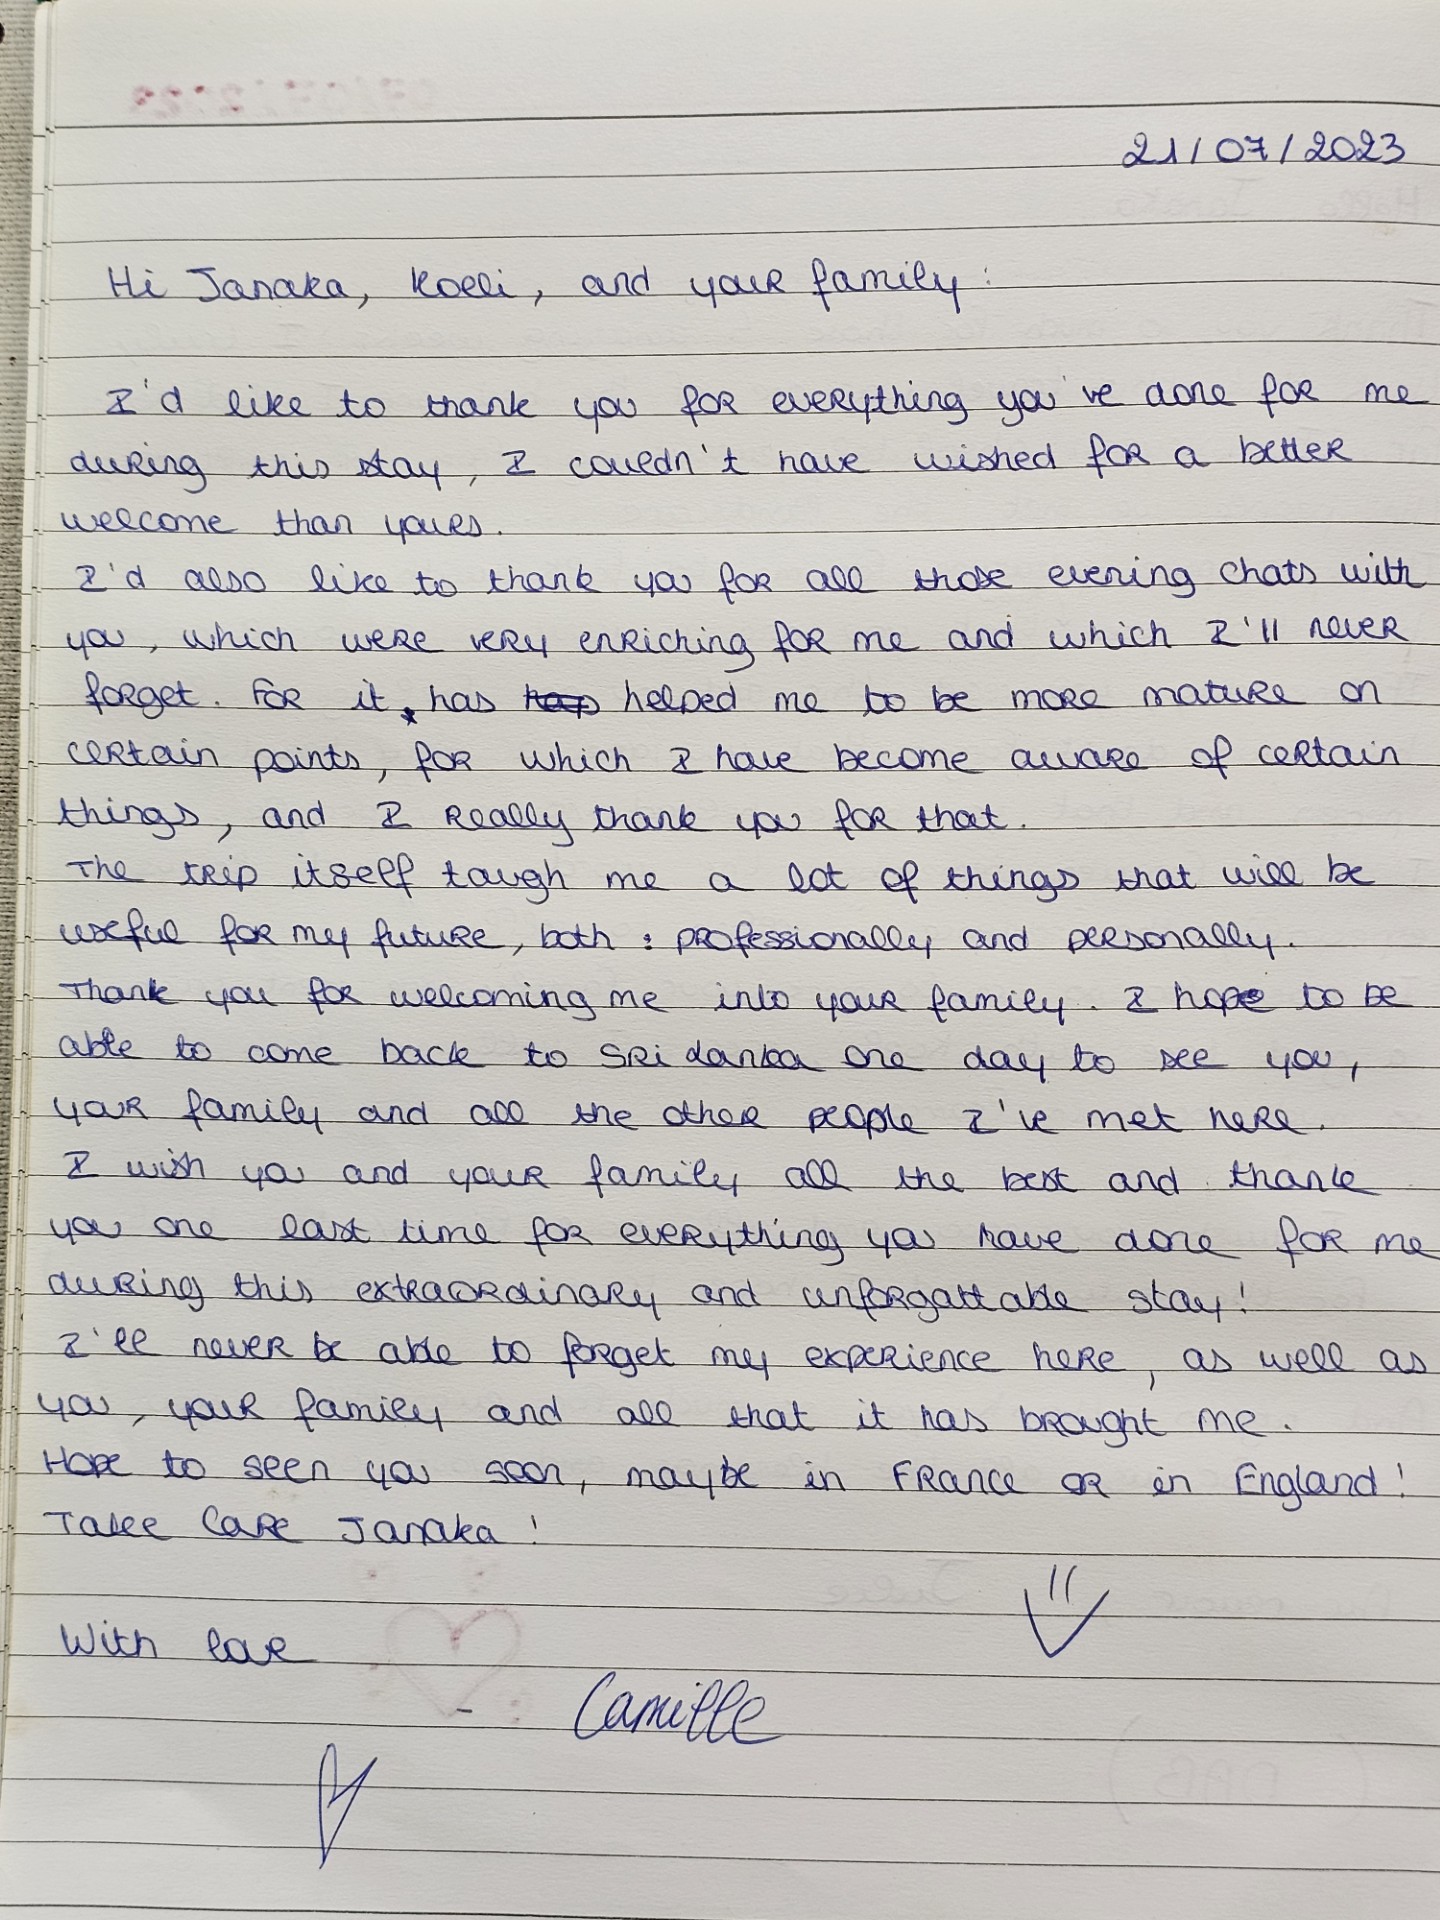 21/07/2023
Hi Janaka, Koeli, and your family :
I'd like to thank you for everything you've done for me
during this stay, I couldn't have wished for a better
welcome than yours.
I'd also like to thank you for all those evening chats with
you, which were very enriching for me and which I'll never
forget. For it has has helped me to be more mature on
certain points, for which I have become aware of certain
things, and I really thank you for that.
The trip itself taugh me a lot of things that will be
useful for my future, both : professionally and personally.
Thank you for welcoming me into your family. I hope to be
able to come back to Sri Lanka one day to see you,
your family and all the other people I've met here.
I wish you and your family all the best and thank
you one last time for everything you have done for me
during this extraordinary and unforgattable stay!
I'll never be able to forget my experience here, as well as
you, your family and all that it has brought me.
Hope to seen you soon, maybe in France or in England!
Take Care Janaka!
With love
Camille